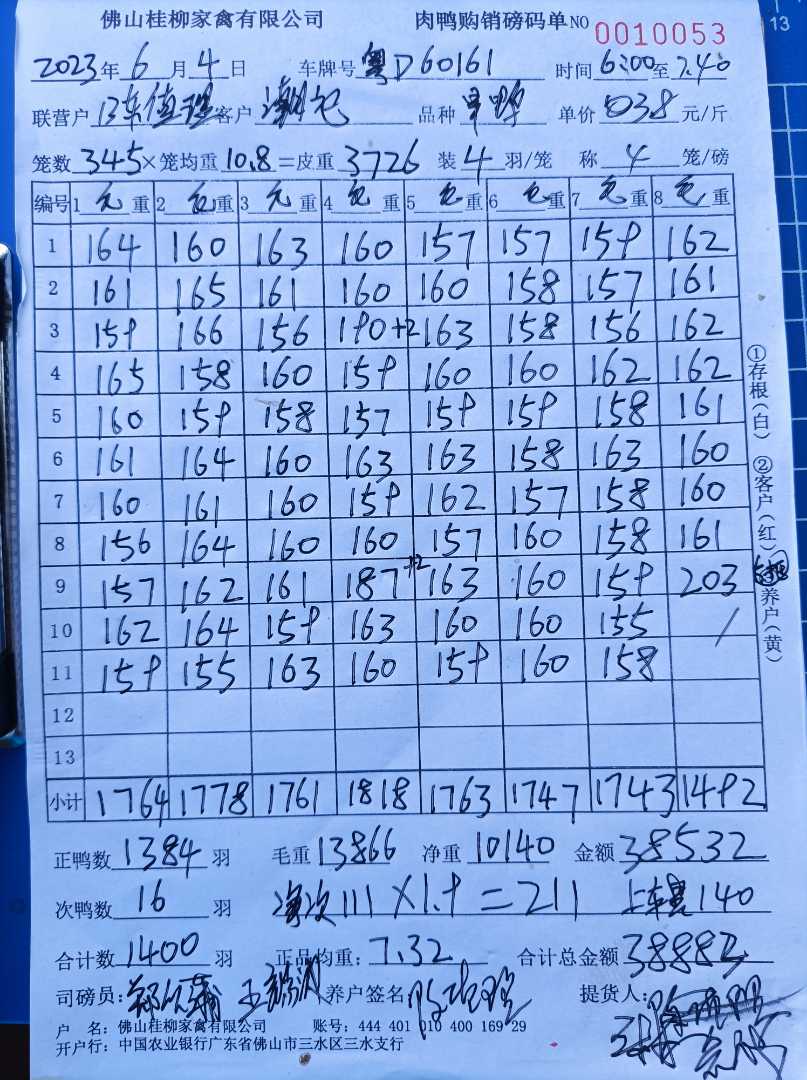 佛山桂柳家禽有限公司 肉鸭购销磅码单 NO 0010053
2023年6月4日 车牌号 粤D60161 时间 6:00至7.40
联营户 客户 品种 单价 038 元/斤
笼数 345×笼均重 10.8=皮重 3726 装 4 羽/笼 称 4 笼/磅
编号 1 毛 重 2 毛 重 3 毛 重 4 毛 重 5 毛 重 6 毛 重 7 毛 重 8 毛 重
1 164 160 163 160 157 157 159 162
2 161 165 161 160 160 158 157 161
3 159 166 156 190+2 163 158 156 162
4 165 158 160 159 160 160 162 162
5 160 159 158 157 159 159 158 161
6 161 164 160 163 163 158 163 160
7 160 161 160 159 162 157 158 160
8 156 164 160 160 157 160 158 161
9 157 162 161 187+2 163 160 159 203
10 162 164 159 163 160 160 155 /
11 159 155 163 160 159 160 158
12
13
小计 1764 1778 1761 1818 1763 1747 1743 1492
①存根(白) ②客户(红) 养户(黄)
正鸭数 1384 羽 毛重 13866 净重 10140 金额 38532
次鸭数 16 羽 次 111×1.9=211 上车 140
合计数 1400 羽 正品均重: 7.32 合计总金额 38883
司磅员: 养户签名 提货人:
户 名: 佛山桂柳家禽有限公司 账号: 444 401 010 400 169 29
开户行: 中国农业银行广东省佛山市三水区三水支行
13